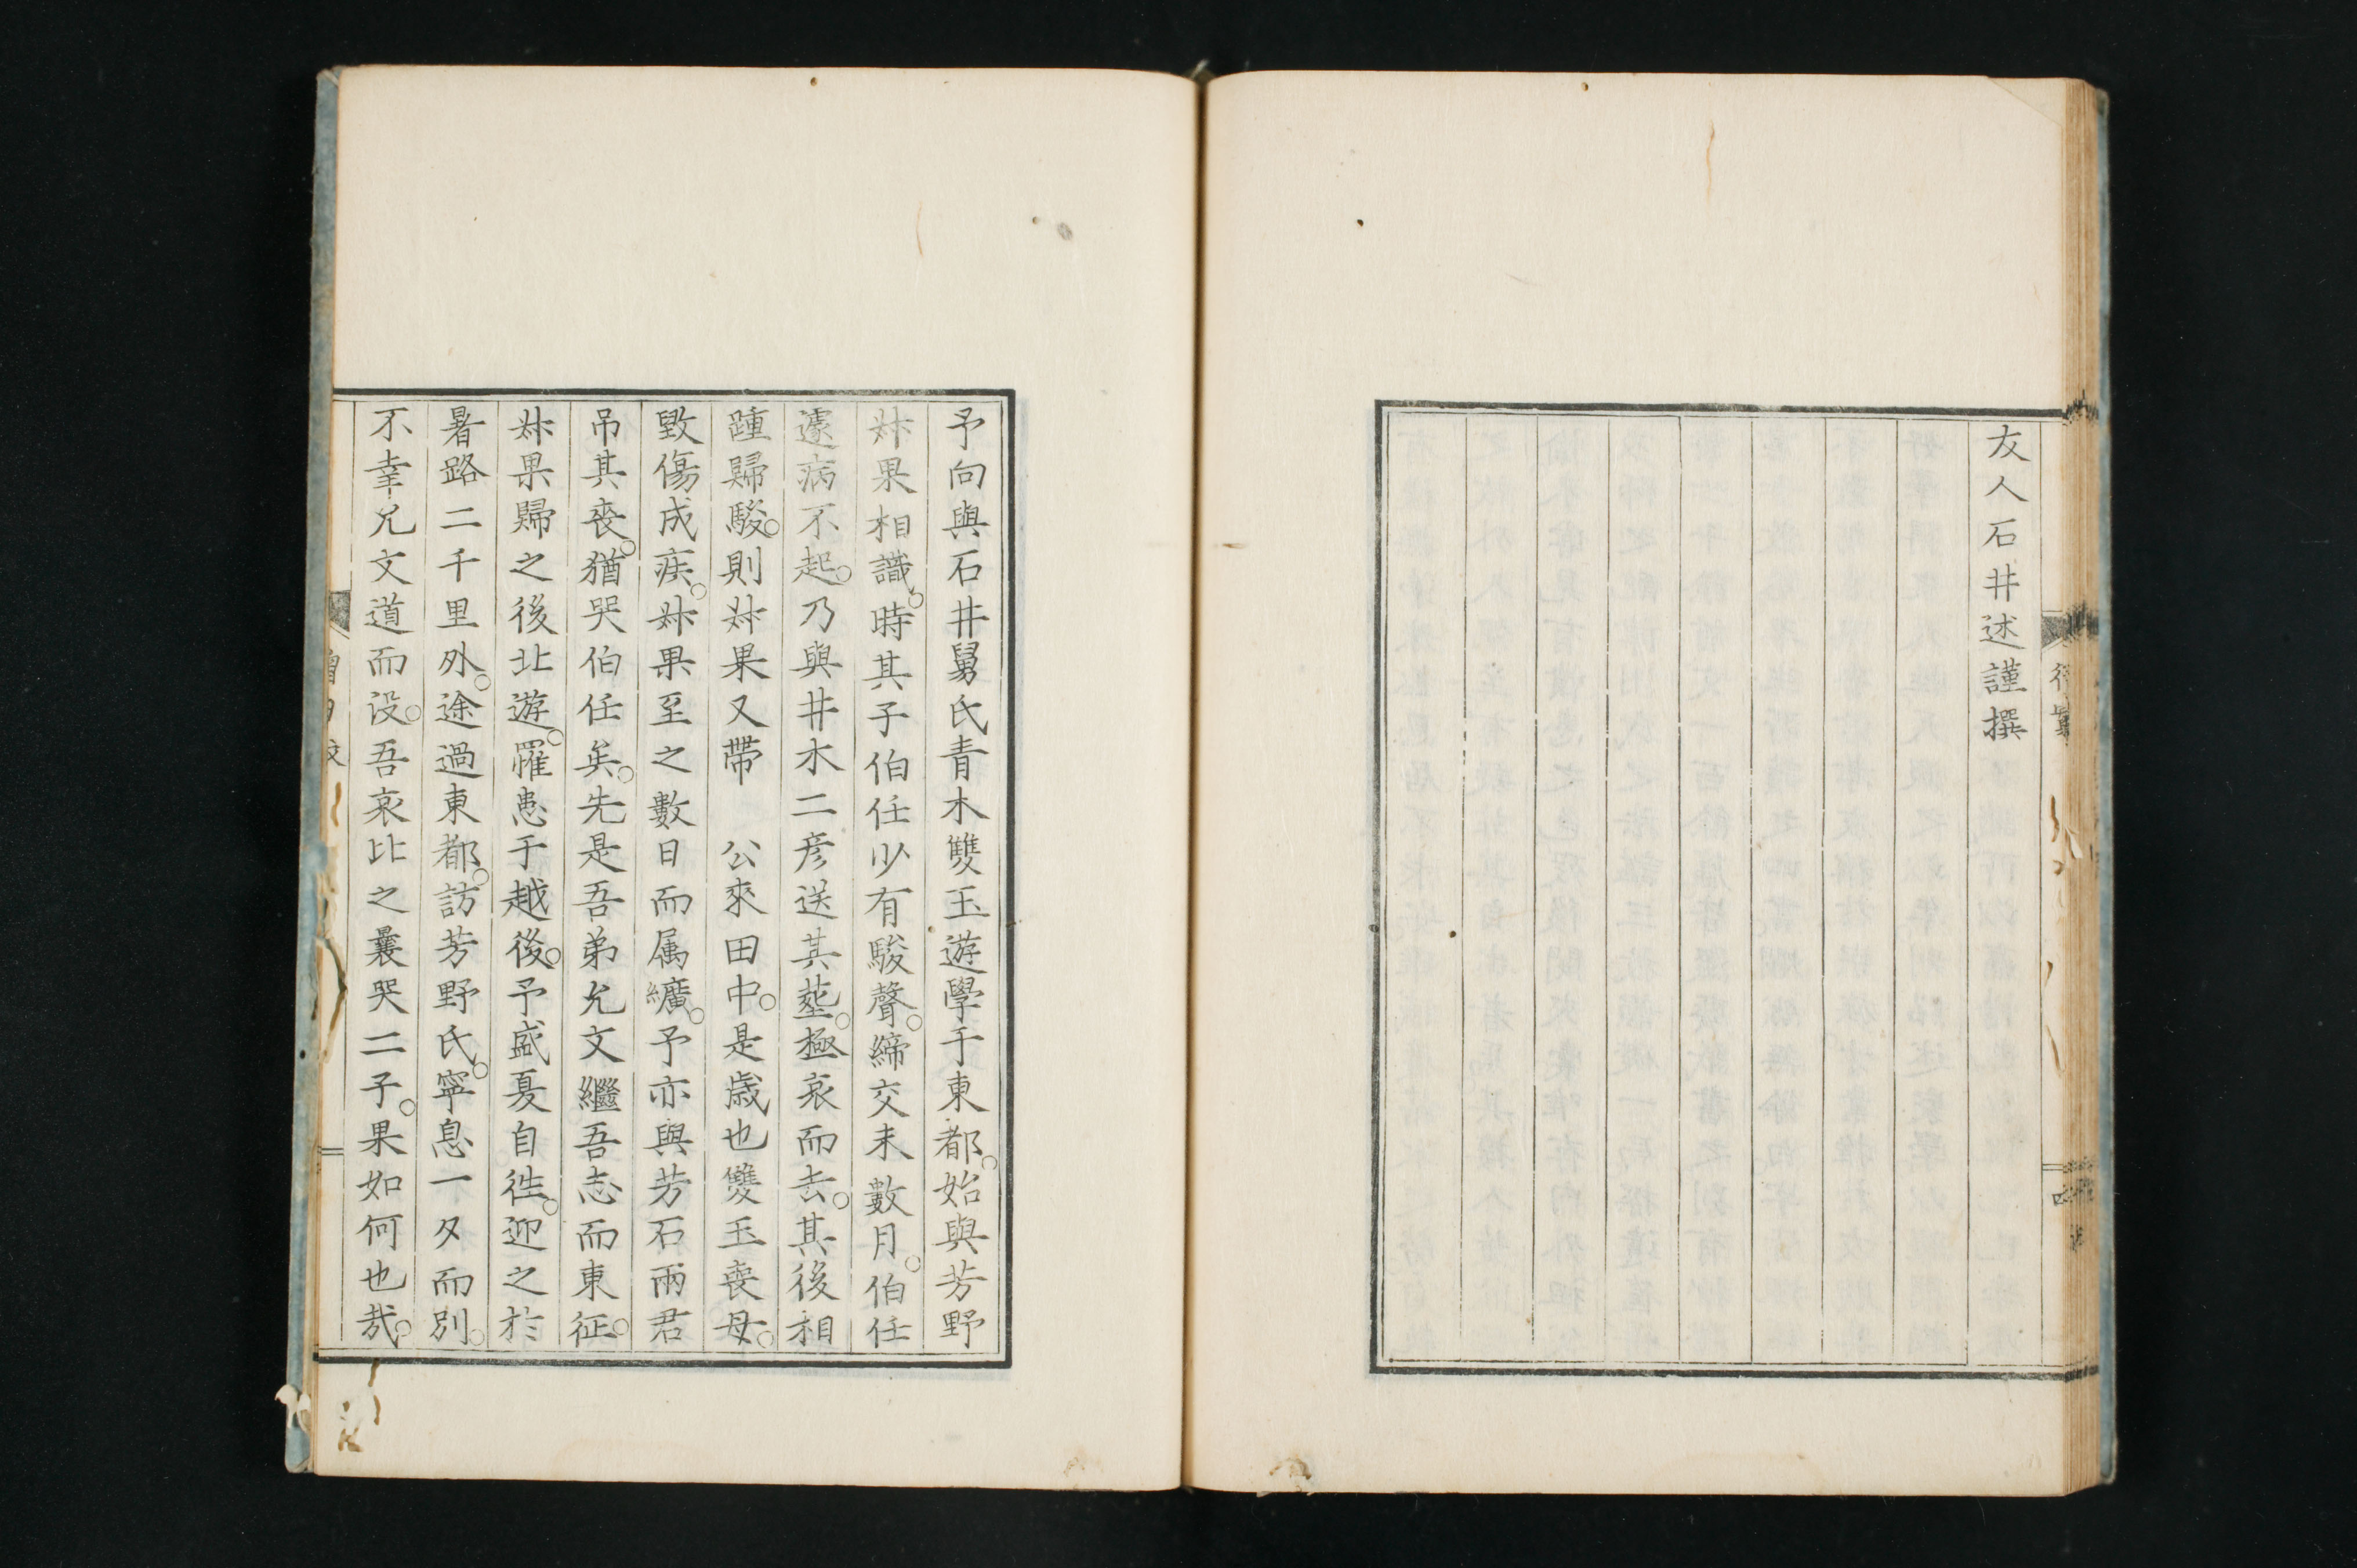 友人石井述謹撰
予向與石井舅氏青木雙玉遊學于東都。始與芳野
叔果相識。時其子伯任少有駿聲。締交未數月。伯任
遽病不起。乃與井木二彦送其葬。極哀而去。其後相
踵歸駿。則叔果又帶　公來田中。是歳也雙玉喪母。
毀傷成疾。叔果至之數日而属纊。予亦與芳石兩君
吊其喪。猶哭伯任矣。先是吾弟允文繼吾志而東征。
叔果歸之後北遊。罹患于越後。予盛夏自往。迎之於
暑路二千里外。途過東都。訪芳野氏。寧息一夕而別。
不幸允文道而没。吾哀比之曩哭二子。果如何也哉。